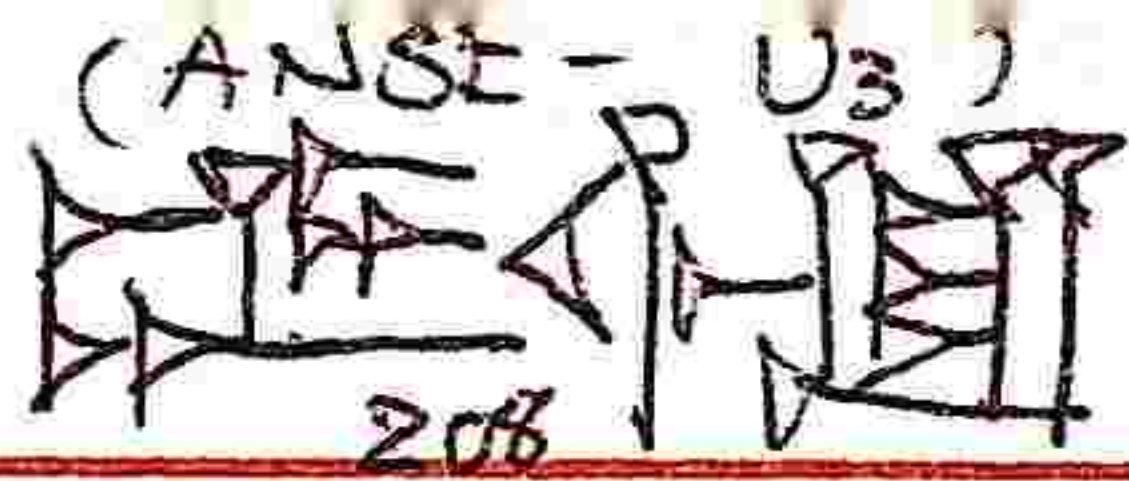 (ANSE - U3)
𒀲 𒅇
208